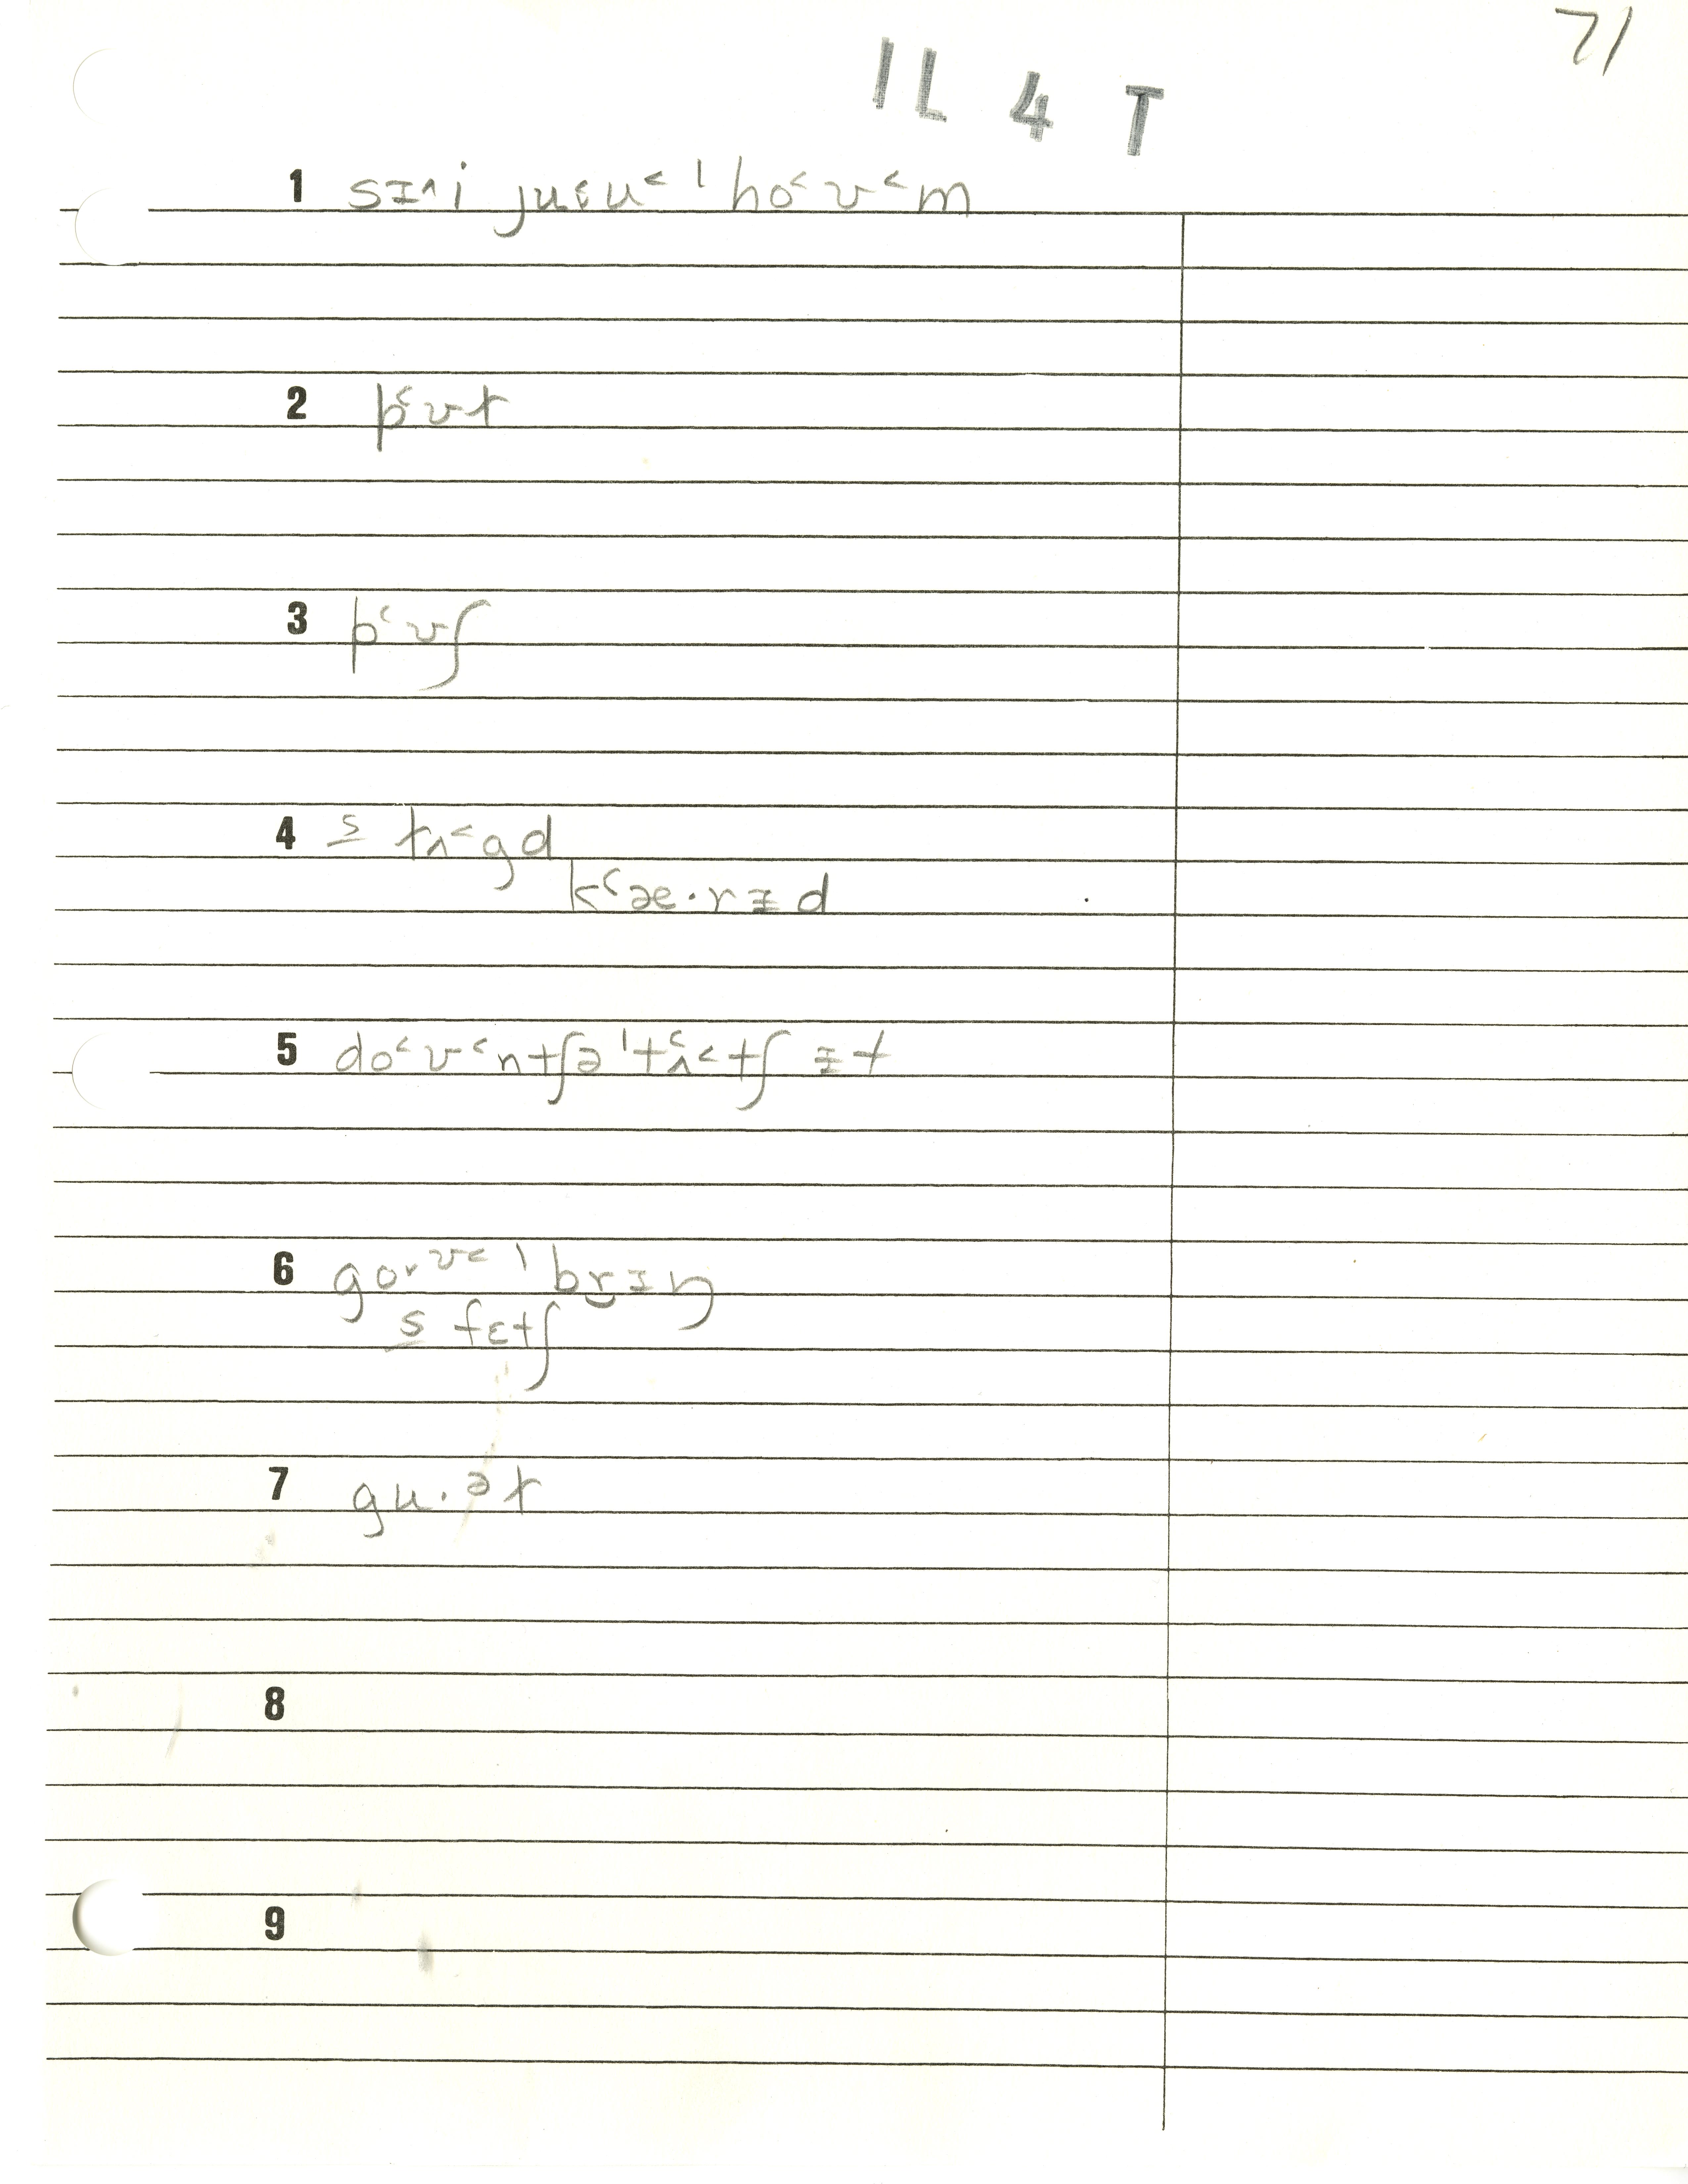 71
IL 4 T
1 sɪ^i ju˂u˂ ˈho˂ʊ˂m
2 pʿʊt
3 pʿʊʃ
4 s̲ tʌ˂gd
kʿæ·rɪd
5 do˂ʊ˂ntʃə ˈtʿʌ˂tʃ ɪt
6 go˞ʊ˂ ˈbr̮ɪŋ
s̲ fɛtʃ
7 gu·ət
8
9